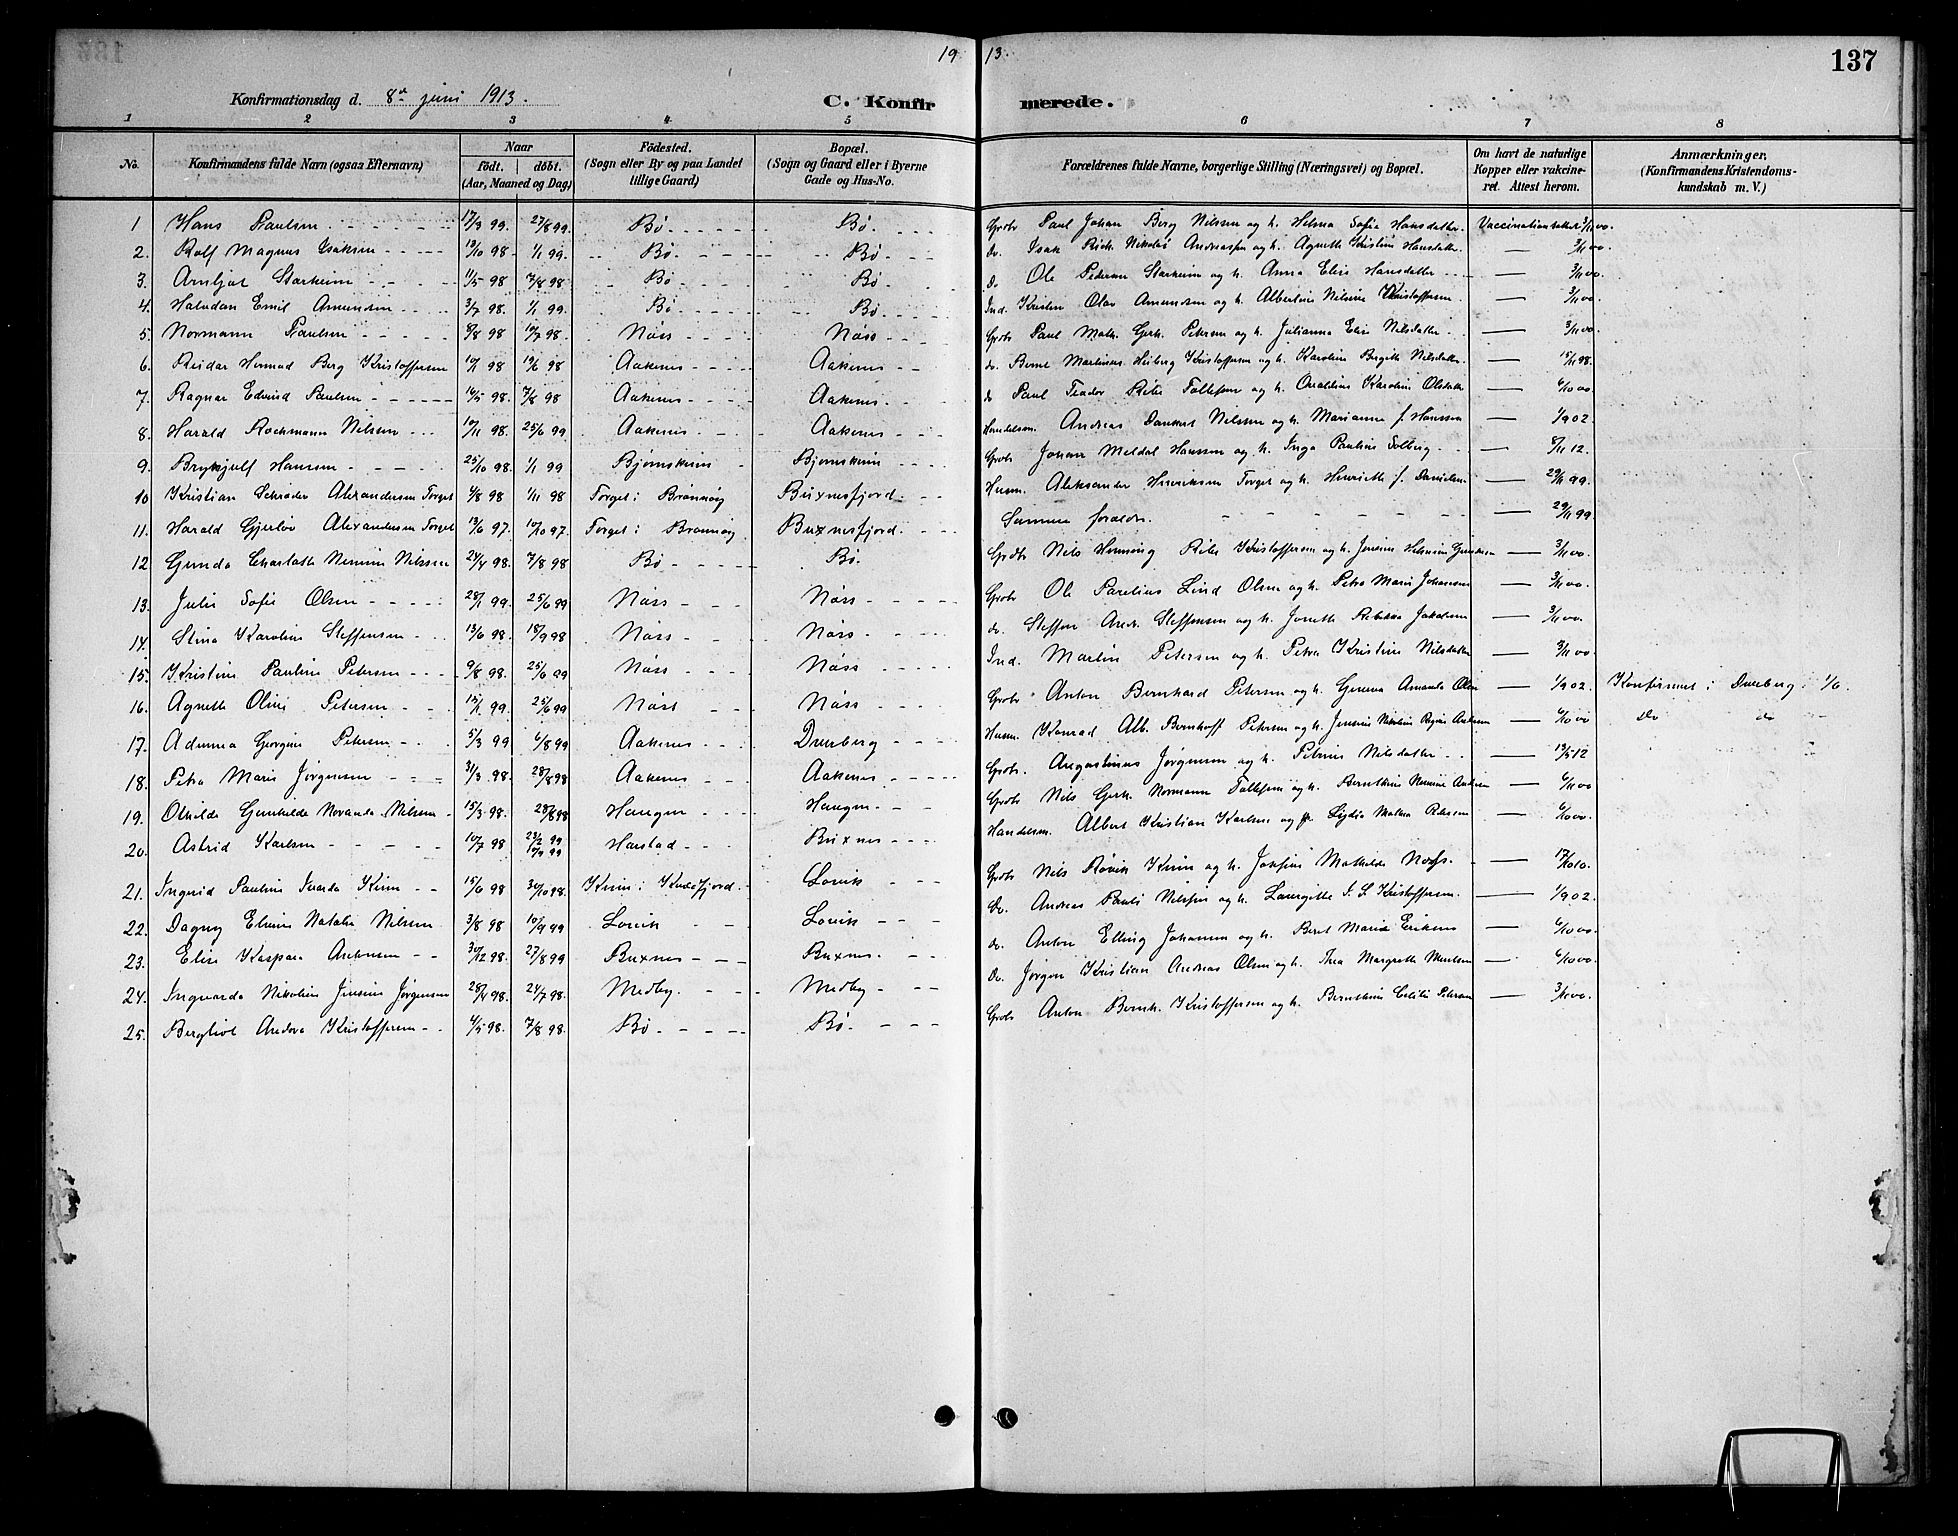 19 13.
137
Konfirmationsdag d. 8de juni 1913.
C. Konfirmerede.
1 2 3 4 5 6 7 8
No.
Konfirmandens fulde Navn (ogsaa Efternavn)
Naar
födt. döbt.
(Aar, Maaned og Dag)
Födested.
(Sogn eller By og paa Landet
tillige Gaard)
Bopæl.
(Sogn og Gaard eller i Byerne
Gade og Hus-No.
Forældrenes fulde Navne, borgerlige Stilling (Næringsvei) og Bopæl.
Om havt de naturlige
Kopper eller vakcine-
ret. Attest herom.
Anmærkninger.
(Konfirmandens Kristendoms-
kundskab m. V.)
1 Hans Paulsen 17/3 99. 27/8 99 Bø Bø Grdbr Paul Johan Berg Nilssen og h. Helma Sofie Hansdatter Vaccinationsattest 3/11 00.
2. Rolf Magnus Isaksen 13/10 98 1/1 99. Bø Bø do. Isak Rich. Nikolai Andreassen og h. Agnethe Kristine Hansdatter — 3/11 00.
3. Arnljot Starheim 11/5 98 7/8 98 Bø Bø Do Ole Pedersen Starheim og h. Anna Elise Hansdatter — 3/11 00.
4. Halvdan Emil Amundsen 3/7 98. 1/1 99. Bø Bø Ind. Kristen Olav Amundsen og h. Albertine Nilsine Kristoffersen — 3/11 00.
5. Normann Paulsen 8/8 98 10/7 98. Nøss Nøss Grdbr Paul Math. Gerh. Petersen og h. Julianna Elise Nilsdatter — 3/11 00.
6. Reidar Hermod Berg Kristoffersen 10/1 98 19/6 98 Aakenes Aakenes do. Bernt Martinus Heiberg Kristoffersen og h. Karoline Bergithe Nilsdatter — 15/11 98.
7. Ragnar Edvind Paulsen 16/5 98. 7/8 98 Aakenes Aakenes do Paul Teodor Peter Tollefsen og h. Karoline Olsdatter — 6/10 00
8. Harald Rochmann Nilsen 10/11 98. 25/6 99 Aakenes Aakenes Handelsm. Andreas Dankert Nilssen og h. Marianne f. Hanssen — 1/9 02.
9. Brynjulf Hansen 25/10 98. 1/1 99 Bjørnskinn Bjørnskinn Grdbr Johan Meldal Hanssen og h. Inga Pauline Solberg — 8/11 12.
10 Kristian Schrøder Alexandersen Torget 4/8 98 1/11 98 Torget i Brønnøy Buxnesfjord. Husm. Aleksander Henriksen Torget og h. Henriette f. Danielsen — 29/11 99.
11. Harald Gjerløv Alexandersen Torget 13/6 97. 10/10 97. Torget i Brønnøy Buxnesfjord Samme foreldre. 29/11 99
12 Gunda Charlotte Nilssen 24/4 98. 7/8 98 Bø Bø. Grdbr Nils Henning Peter Kristoffersen og h. — 3/11 00.
13. Julie Sofie Olsen 28/1 99. 25/6 99 Nøss Nøss Grdbr Ole Parelius Lind Olsen og h. Petra Marie Johansen — 3/11 00.
14. Stina Karoline Steffensen 13/6 98. 18/9 98 Nøss Nøss do. Steffen Andr. Steffensen og h. Jonette Rebekka Jakobsen — 3/11 00.
15. Kristine Pauline Petersen 9/8 98. 25/6 99 Nøss Nøss Ind. Martin Petersen og h. Petra Kristine Nilsdatter — 3/11 00.
16. Agnethe Oline Petersen 15/1 99. 25/6 99 Nøss Nøss Grdbr Anton Bernhard Petersen og h. Amanda Olsen — 1/9 02. Konfirmert i Dverberg 1/6.
17. Georgine Petersen 5/3 99 6/8 99 Aakenes Dverberg Husm. Konrad Alb. Bernhoff Petersen og h. — 6/10 00 do do
18. Petra Marie Jørgensen 31/3 98. 28/8 98 Aakenes Aakenes Grdbr. Augustinus Jørgensen og h. Petrine Nilsdatter — 13/5 12
19. Othilde Gunhilde Novanda Nilsen 15/3 98. 28/8 98 Haugen Haugen Grdbr Nils Gerh. Normann Tollefsen og h. — 6/11 00
20. Astrid Karlsen 10/7 98 23/2 99 Harstad Buxnes Handelsm. Albert Kristian Karlsen og h. Lydia Mathea Petersen — 6/10 00.
21. Ingrid Pauline Kiim 15/6 98 30/10 98. Kiim i Kvæfjord Lovik Grdbr Nils Røvik Kiim og h. Josefine Mathilde — 17/10 10.
22. Dagny Elvine Natalie Nilsen 3/8 98 10/9 99 Lovik Lovik Do. Andreas Pauli Nilssen og h. Kristoffersen — 1/9 02.
23. Elise Kaspara Antonsen 30/12 98. 27/8 99 Buxnes Buxnes. do. Anton Elling Johansen og h. Beret Marie — 6/10 00.
24. Ingvarda Nikoline Jensine Jørgensen 28/4 98. 24/7 98. Medby. Medby Do. Jørgen Kristian Andreas Olsen og h. Thea Margrethe — 6/10 00.
25. Bergliot Andora Kristoffersen 4/5 98. 7/8 98. Bø Bø. Grdbr Anton Bernh. Kristoffersen og h. Petersen — 3/11 00.